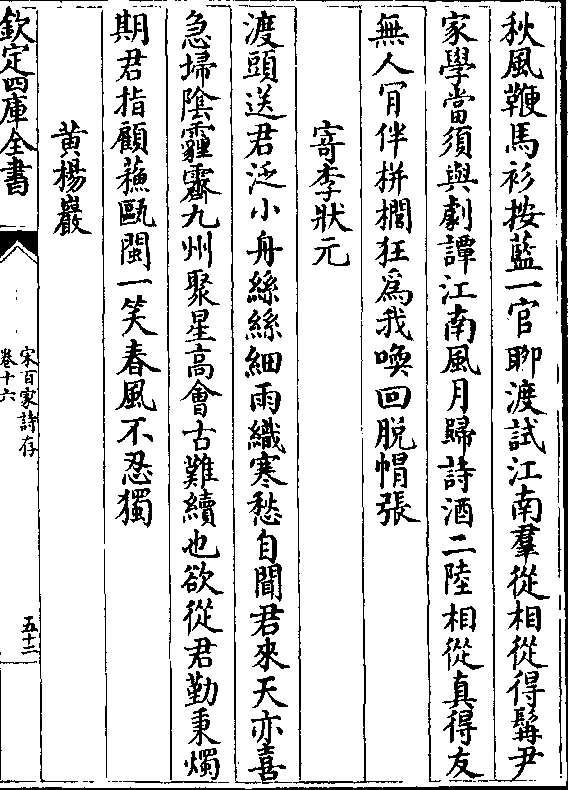 秋風鞭馬衫挼藍一官聊渡試江南羣從相從得髯尹
家學當須與劇譚江南風月歸詩酒二陸相從真得友
無人肎伴栟櫚狂為我喚回脱帽張
寄李狀元
渡頭送君泛小舟絲絲細雨織寒愁自聞君來天亦喜
急埽陰霾霽九州聚星髙會古難續也欲從君勤秉燭
期君指顧蘓甌閩一笑春風不忍獨
黄楊巖
欽定四庫全書
宋百家詩存
卷十六
五十二